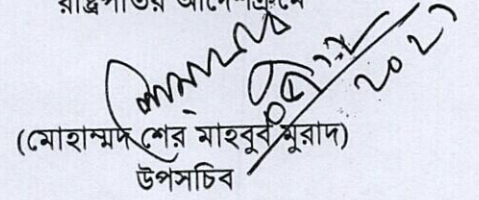 রাষ্ট্রপতির আদেশক্রমে
২০২১
(মোহাম্মদ শের মাহবুব মুরাদ)
উপসচিব